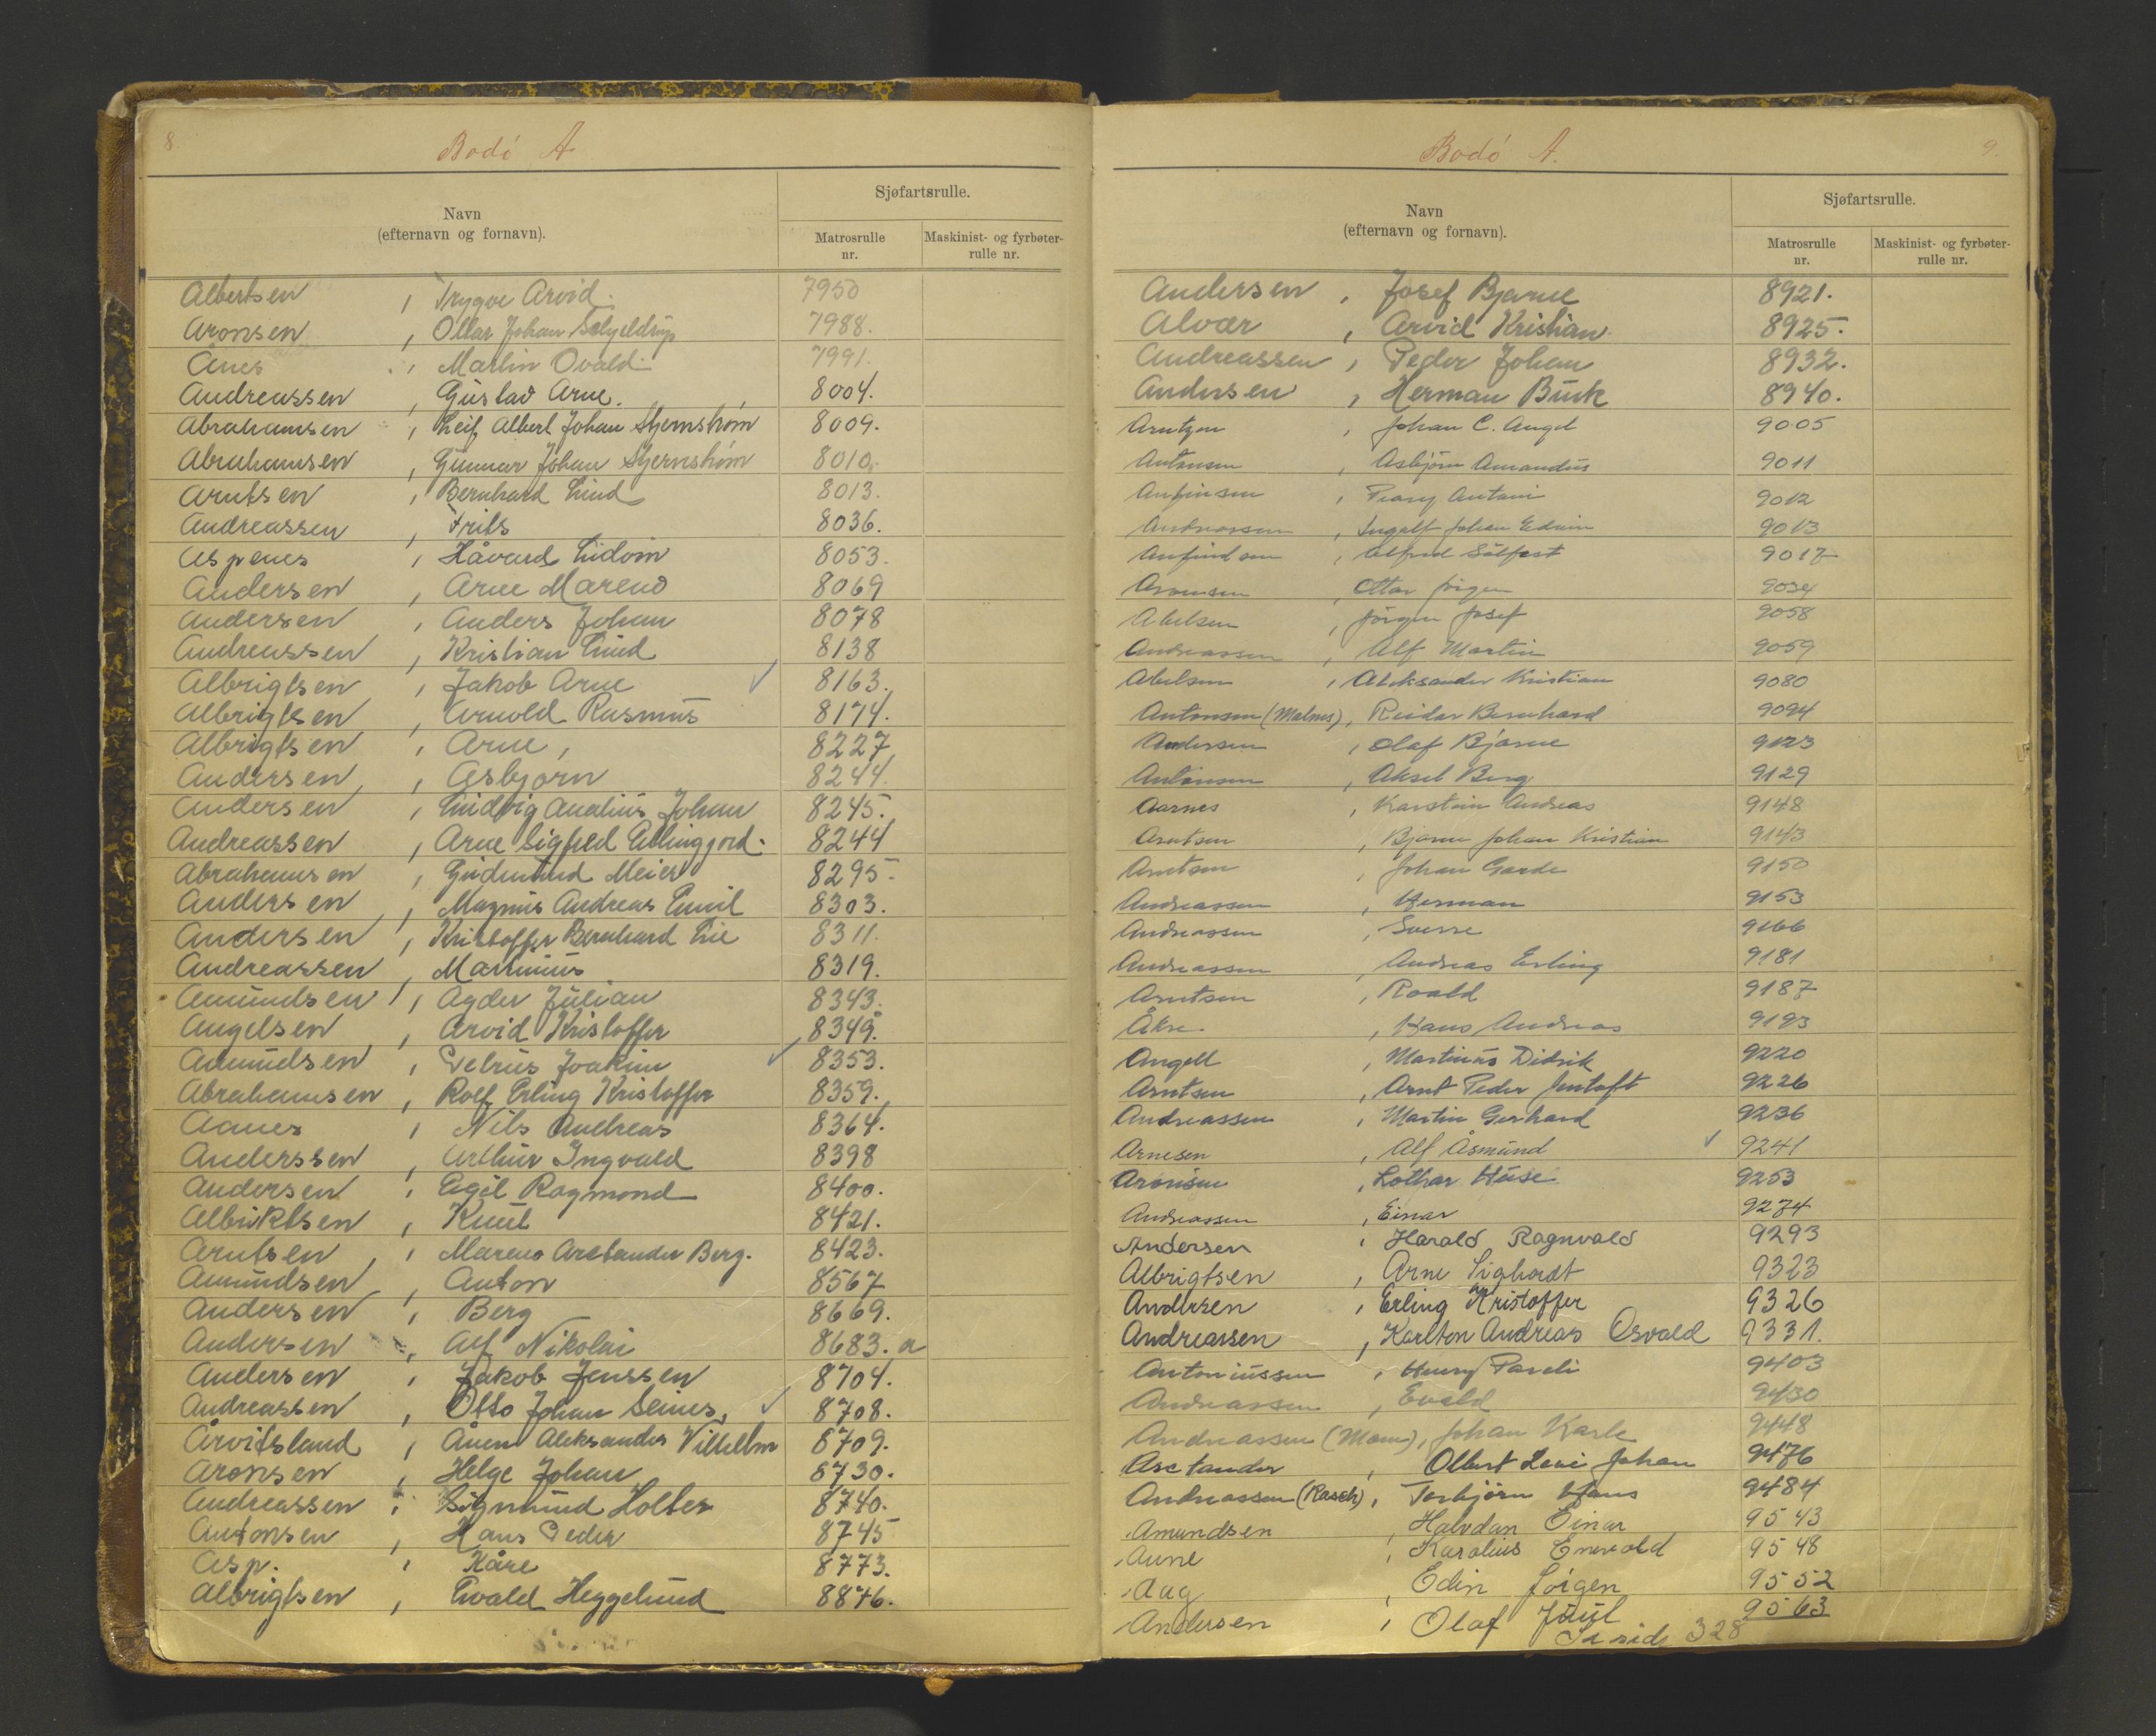 8.
Bodó A
Navn
(efternavn og fornavn).
Sjøfartsrulle.
Matrosrulle
nr.
Maskinist- og fyrbøter-
rulle nr.
Albertsen, Trygve Arvid. 7950
Aronsen, Ottar Johan Schjeldrup 7988.
Anes, Martin Ovald 7991.
Andreassen, Gústav Arne. 8004.
Abrahamsen, Leif Albert Johan Stjernstrøm 8009.
Abrahamsen, Gúnnar Johan Stjernstrøm 8010.
Arntsen, Bernhard Lind 8013.
Andreassen, Frits 8036.
Aspenes, Håvard 8053.
Andersen, Arne Mareno 8069
Andersen, Anders Johan 8078
Andreassen, Kristian Lund 8138
Albrigtsen, Jakob Arne 8163.
Albrigtsen, Arnold Rasmus 8174.
Albrigtsen, Arne, 8227
Andersen, Asbjørn 8244.
Andersen, Ludvig Analius Johan 8245.
Andreassen, Arne Sigfred Ellinggard. 8244
Abrahamsen, Gúdmund Meier 8295.
Andersen, Magnus Andreas Emil 8303.
Andersen, Kristoffer Bernhard Lie 8311.
Andreassen, Martinius 8319.
Amundsen, Agder Júlian 8343.
Angelsen, Arvid Kristoffer 8349.
Amundsen, Petrus Joakim 8353.
Abrahamsen, Rolf Erling Kristoffer 8359.
Aanes, Nils Andreas 8364.
Anderssen, Arthur Ingvald 8398
Andersen, Egil Ragmond 8400.
Albriktsen, Knut 8421.
Arntsen, Mareno Arctander Berg. 8423.
Amundsen, Anton 8567
Andersen, Berg 8669.
Andersen, Alf Nikolai 8683. a
Andersen, Jakob Jenssen 8704.
Andreassen, Otto Johan Seines, 8708.
Årvitsland, Aleksander Vilhelm 8709.
Aronsen, Helge Johan 8730.
Andreassen, Sigmund Holter 8740.
Antonsen, Hans Peder 8745
Asp., Kåre 8773.
Albrigtsen, Evald Heggelund 8876.
Bodó A.
9.
Navn
(efternavn og fornavn).
Sjøfartsrulle.
Matrosrulle
nr.
Maskinist- og fyrbøter-
rulle nr.
Andersen, Josef Bjarne 8921.
Alvær, Arvid Kristian 8925.
Andreassen, Peder Johan 8932.
Andersen, Herman Buik 8940.
Arntzen, Johan C. Angel 9005
Antonsen, Asbjørn Amandus 9011
Anfinsen, Peary Antani 9012
Andreassen, Ingolf Johan Edvin 9013
Anfindsen, Alfred Sålfest 9017
Aronsen, Ottar Jørgen 9034
Abelsen, Jørgen Josef 9058
Andreassen, Alf Martin 9059
Abelsen, Aleksander Kristian 9080
Antonsen (Malnes), Reidar Bernhard 9094
Anderssen, Olaf Bjarne 9123
Antonsen, Aksel Berg 9129
Aarnes, Karstein Andreas 9148
Arntsen, Bjarne Johan Kristian 9143
Arntsen, Johan Garde 9150
Andreassen, Herman 9153
Andreassen, Sverre 9166
Andreassen, Andreas Erling 9181
Arntsen, Roald 9187
Åkre, Hans Andreas 9193
Angell, Martinus Didrik 9220
Arntsen, Arnt Peder Jentoft 9226
Andreassen, Martin Gerhard 9236
Arnesen, Alf Åsmund 9241
Aronsen, Lothar Huse 9253
Andreassen, Einar 9274
Andersen, Harald Ragnvald 9293
Albrigtsen, Arne Sighardt 9323
Andersen, Erling Kristoffer 9326
Andreassen, Karlton Andreas Osvald 9331.
Antoniussen, Henry Pareli 9403
Andreassen, Evald 9430
Andreassen (Moen), Johan Karle 9448
Arctander, Olbert Levi Johan 9476
Andreassen (Rasch), Torbjørn Hans 9484
Amundsen, Halvdan Einar 9543
Aune, Karolius Enevold 9548
Aag, Edin Jørgen 9552
Andersen, Olaf Juul 9563
Se side 328